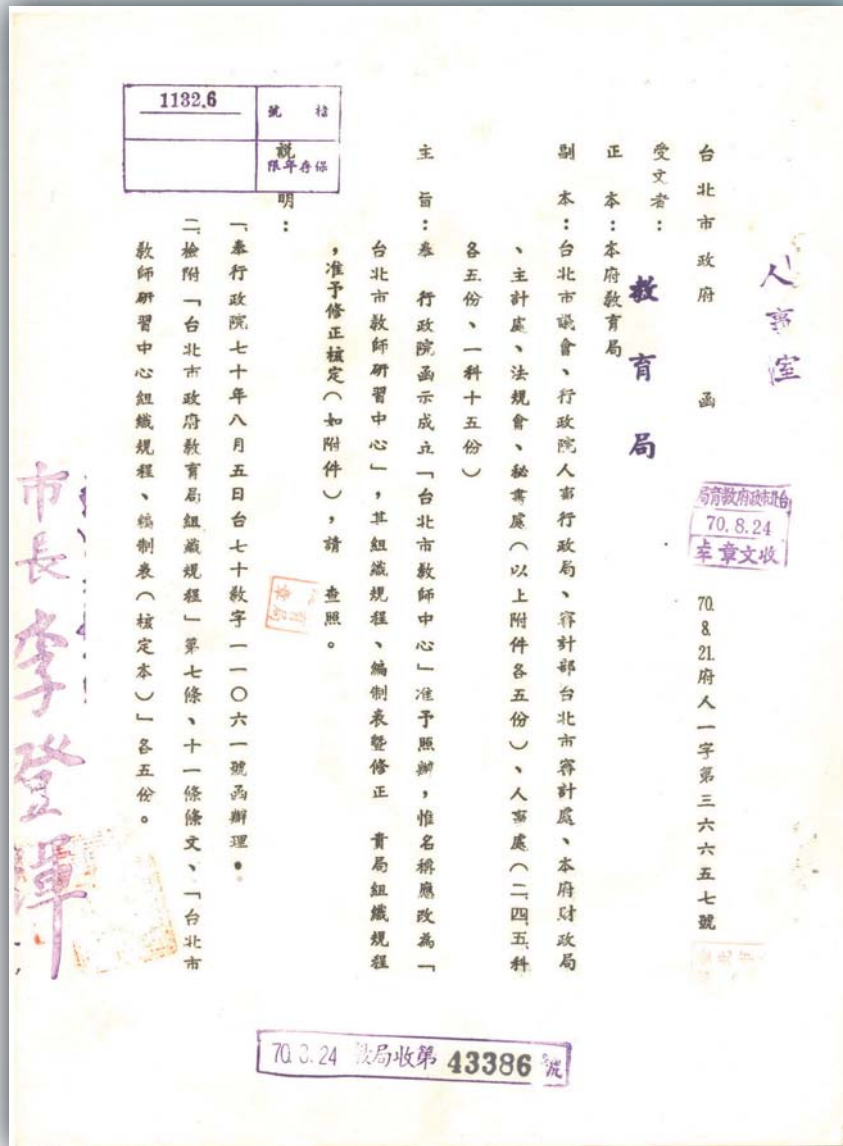 人事室
台北市政府 函
70.8.21.府人一字第三六六五七號
台北市政府教育局
70.8.24
收文章
受文者：教育局
正本：本府教育局
副本：台北市議會、行政院人事行政局、審計部台北市審計處、本府財政局
、主計處、法規會、秘書處（以上附件各五份）、人事處（二、四、五科
各五份、一科十五份）
主旨：奉 行政院函示成立「台北市教師中心」准予照辦，惟名稱應改為「
台北市教師研習中心」，其組織規程、編制表暨修正 貴局組織規程
，准予修正核定（如附件），請 查照。
說明：
一、奉行政院七十年八月五日台七十教字一一〇六一號函辦理。
二、檢附「台北市政府教育局組織規程」第七條、十一條條文、「台北市
教師研習中心組織規程、編制表（核定本）」各五份。
市長 李登輝
檔號
1132.6
保存年限
70.8.24 教局收第 43386 號